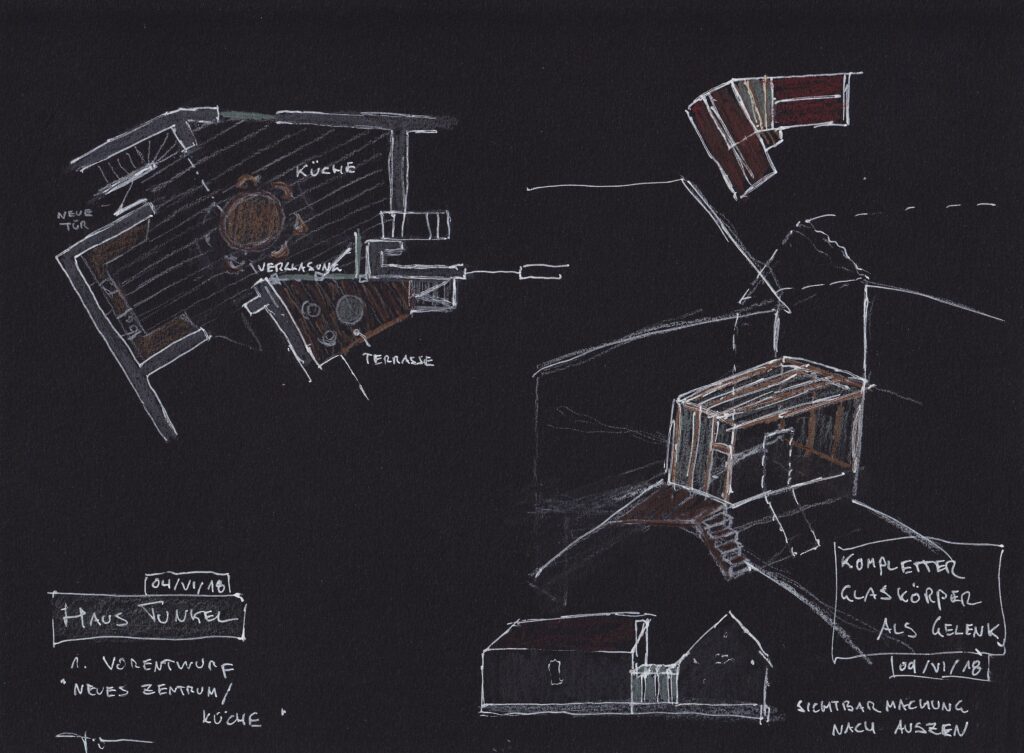 KÜCHE
NEUE
TÜR
VERGLASUNG
TERRASSE
04/VI/18
HAUS TUNKEL
1. VORENTWURF
"NEUES ZENTRUM/
KÜCHE"
KOMPLETTER
GLASKÖRPER
ALS GELENK
09/VI/18
SICHTBARMACHUNG
NACH AUSZEN